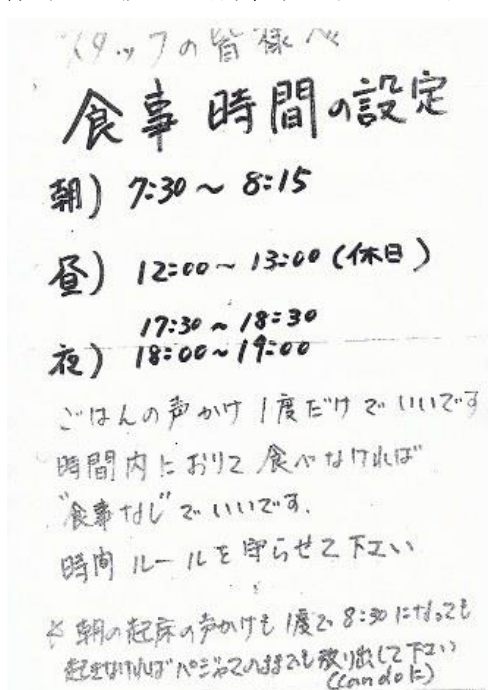 スタッフの皆様へ
食事時間の設定
朝) 7:30～8:15
昼) 12:00～13:00 (休日)
17:30～18:30
夜) 18:00～19:00
ごはんの声かけ1度だけでいいです
時間内におりて食べなければ
"食事なし"でいいです.
時間ルールを守らせて下さい
※朝の起床の声かけも1度で8:30になっても
起きなければパジャマのままでも放り出して下さい
(can doに)